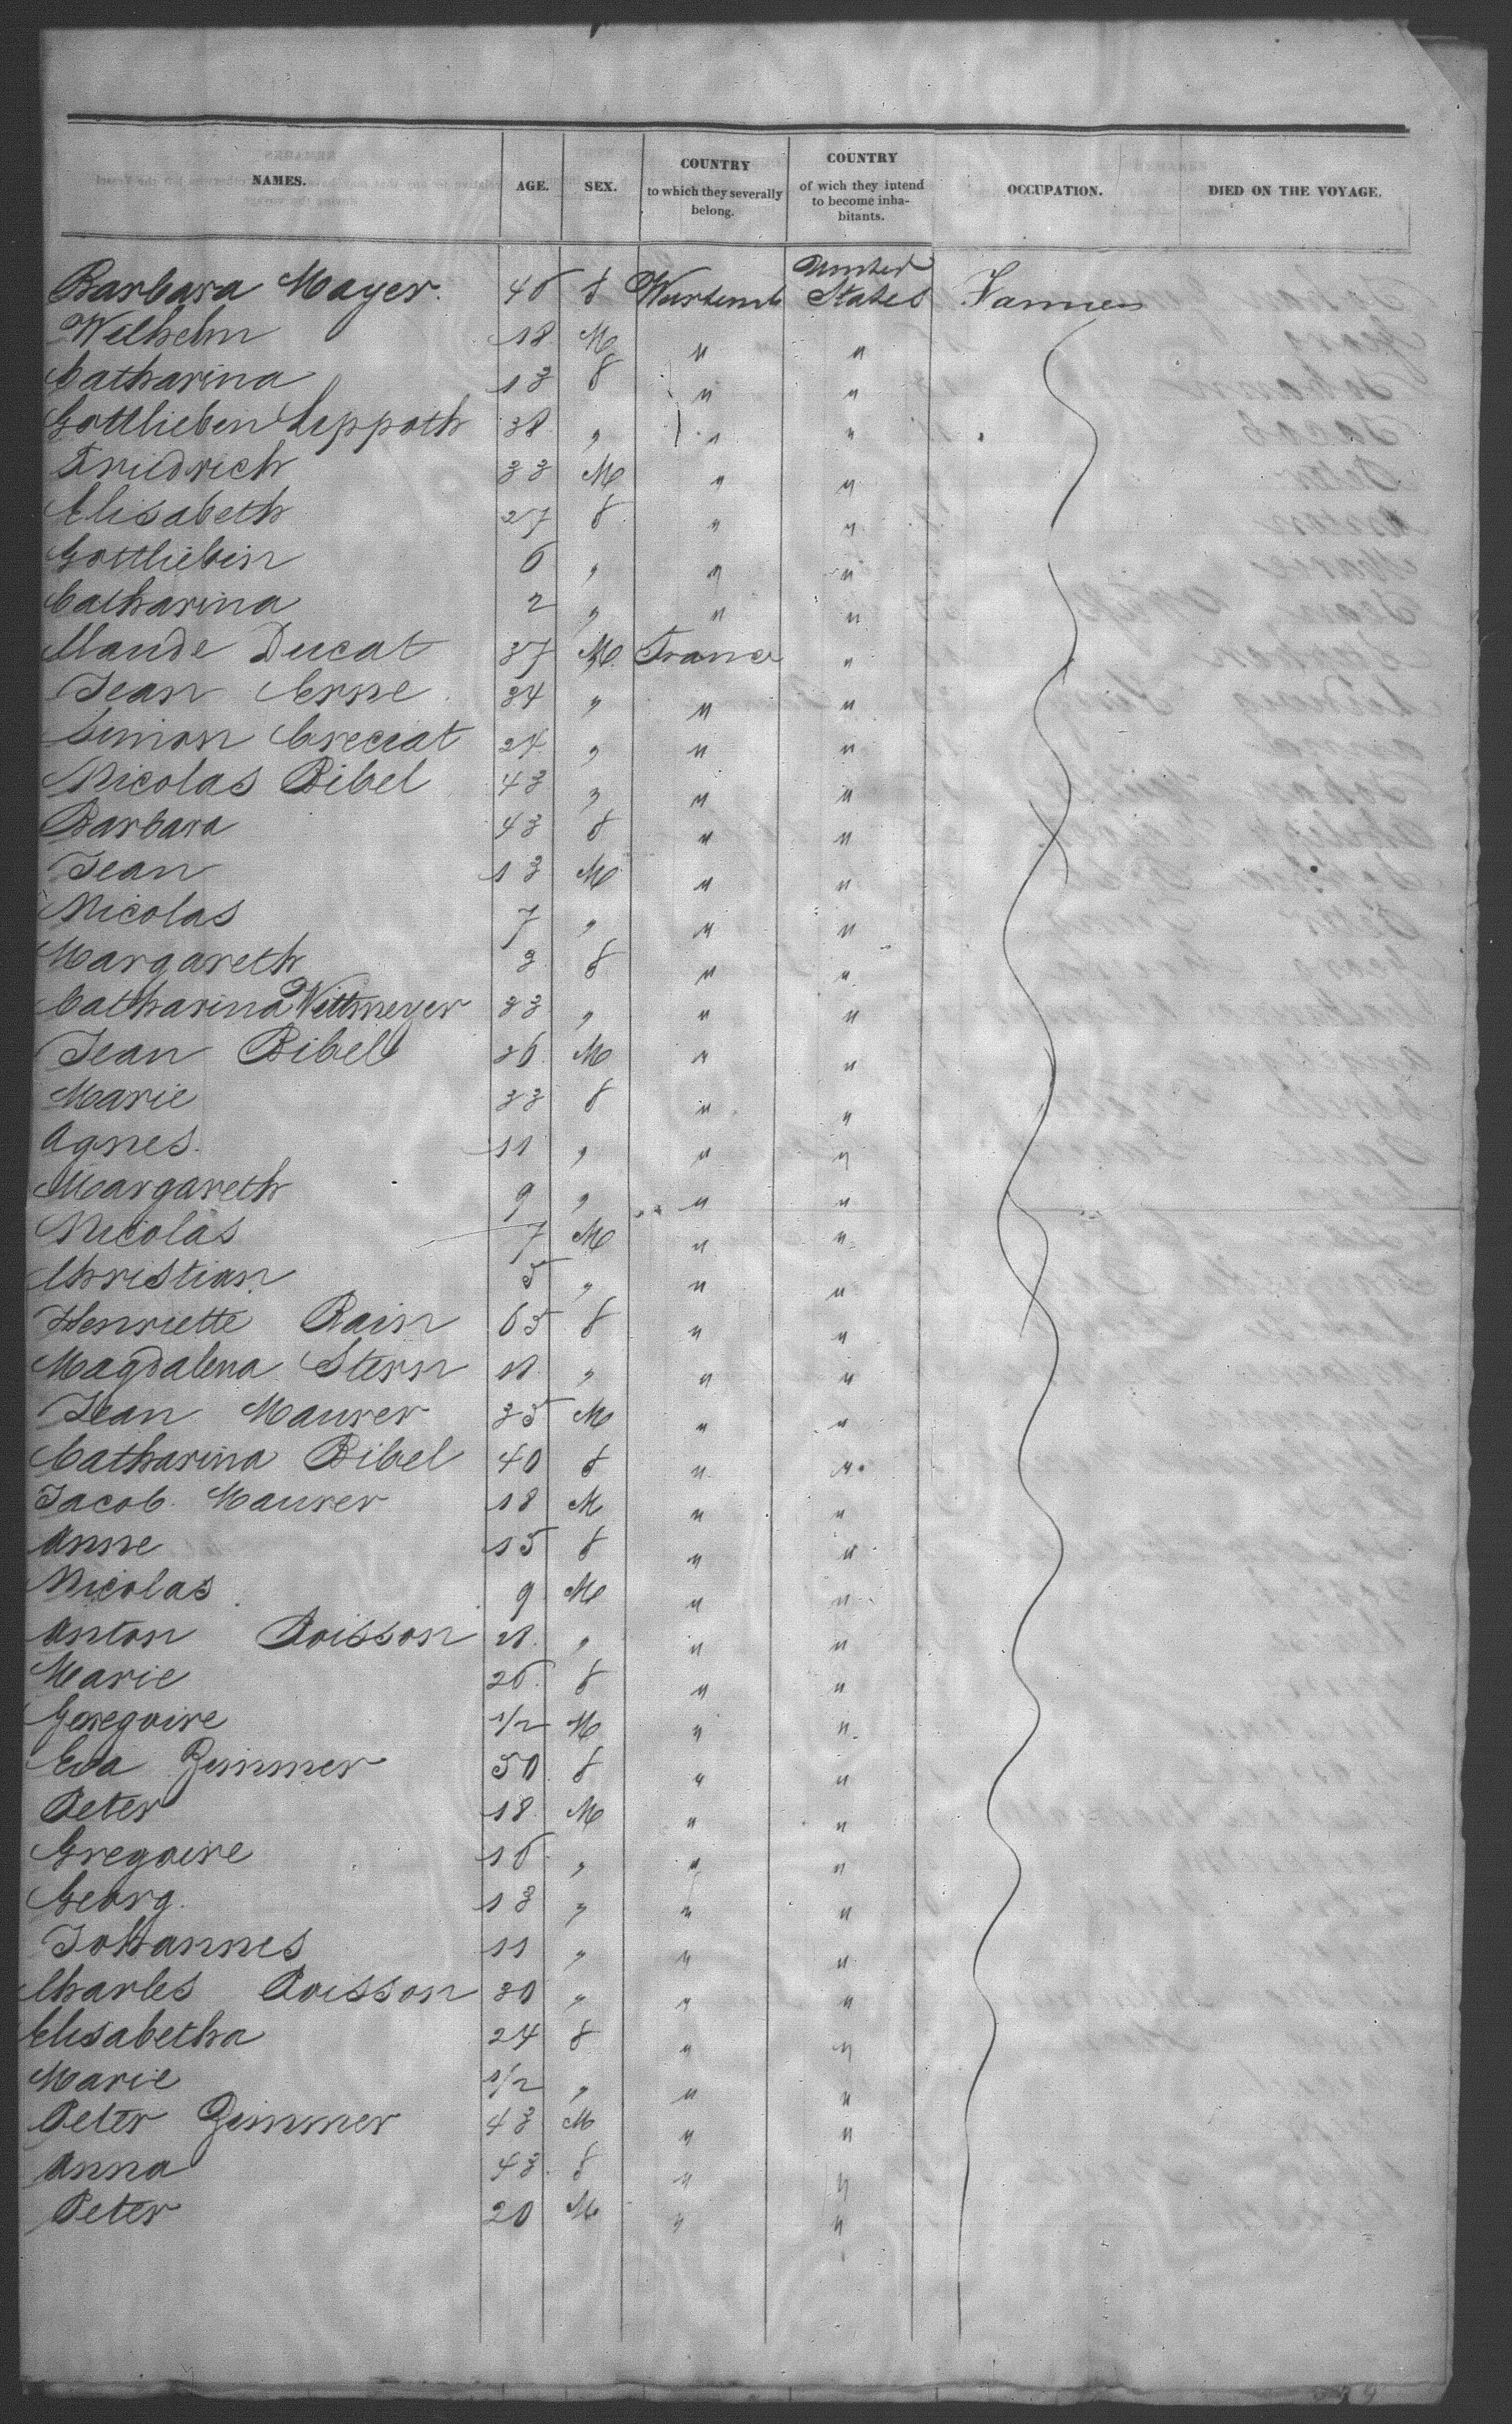 NAMES. AGE. SEX. COUNTRY to which they severally belong. COUNTRY of wich they intend to become inhabitants. OCCUPATION. DIED ON THE VOYAGE.
Barbara Mayer. 46 f Wurtemb United States Farmer
Wilhelm 18 M " "
Catharina 13 f " "
Gottlieben Leppoth 38 " " "
Friedrich 33 M " "
Elisabeth 27 f " "
Gottliebin 6 " " "
Catharina 2 " " "
Claude Ducat 37 M France "
Jean Erne 34 " " "
Simon Creciat 24 " " "
Nicolas Bibel 43 " " "
Barbara 43 f " "
Jean 13 M " "
Nicolas 7 " " "
Margareth 3 f " "
Catharina Wittmeyer 33 " " "
Jean Bibel 36 M " "
Marie 33 f " "
Agnes. 11 " " "
Margareth 9 " " "
Nicolas 7 M " "
Christian 5 " " "
Henriette Bain 65 f " "
Magdalena Stern 18 " " "
Jean Maurer 35 M " "
Catharina Bibel 40 f " "
Jacob Maurer 18 M " "
Anne 15 f " "
Nicolas 9 M " "
Anton Poisson 28 " " "
Marie 26 f " "
Geregoire 1/2 M " "
Eva Zimmer 50 f " "
Peter 18 M " "
Gregoire 16 " " "
Georg. 13 " " "
Johannes 11 " " "
Charles Poisson 30 " " "
Elisabetha 24 f " "
Marie 1/2 " " "
Peter Zimmer 43 M " "
Anna 43 f " "
Peter 20 M " "